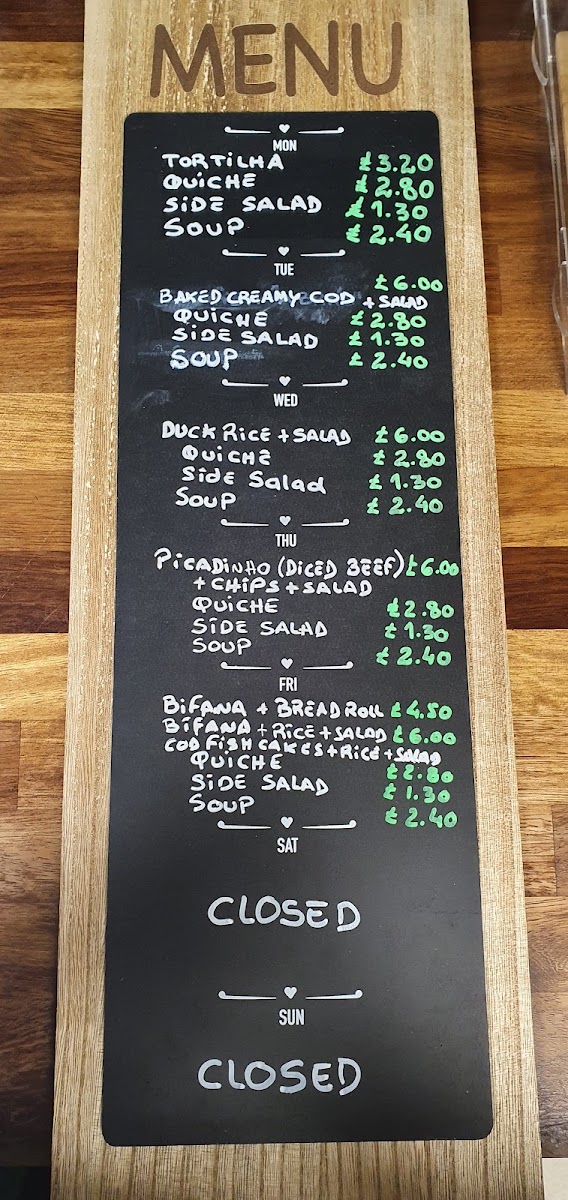 MENU
MON
TORTILHA £3.20
QUICHE £2.80
SIDE SALAD £1.30
SOUP £2.40
TUE
£6.00
BAKED CREAMY COD + SALAD
QUICHE £2.80
SIDE SALAD £1.30
SOUP £2.40
WED
DUCK RICE + SALAD £6.00
QUICHE £2.80
Side Salad £1.30
SOUP £2.40
THU
PICADINHO (DICED BEEF) £6.00
+ CHIPS + SALAD
QUICHE £2.80
SIDE SALAD £1.30
SOUP £2.40
FRI
BIFANA + BREAD ROLL £4.50
BIFANA + RICE + SALAD £6.00
COD FISH CAKES + RICE + SALAD
QUICHE £2.80
SIDE SALAD £1.30
SOUP £2.40
SAT
CLOSED
SUN
CLOSED